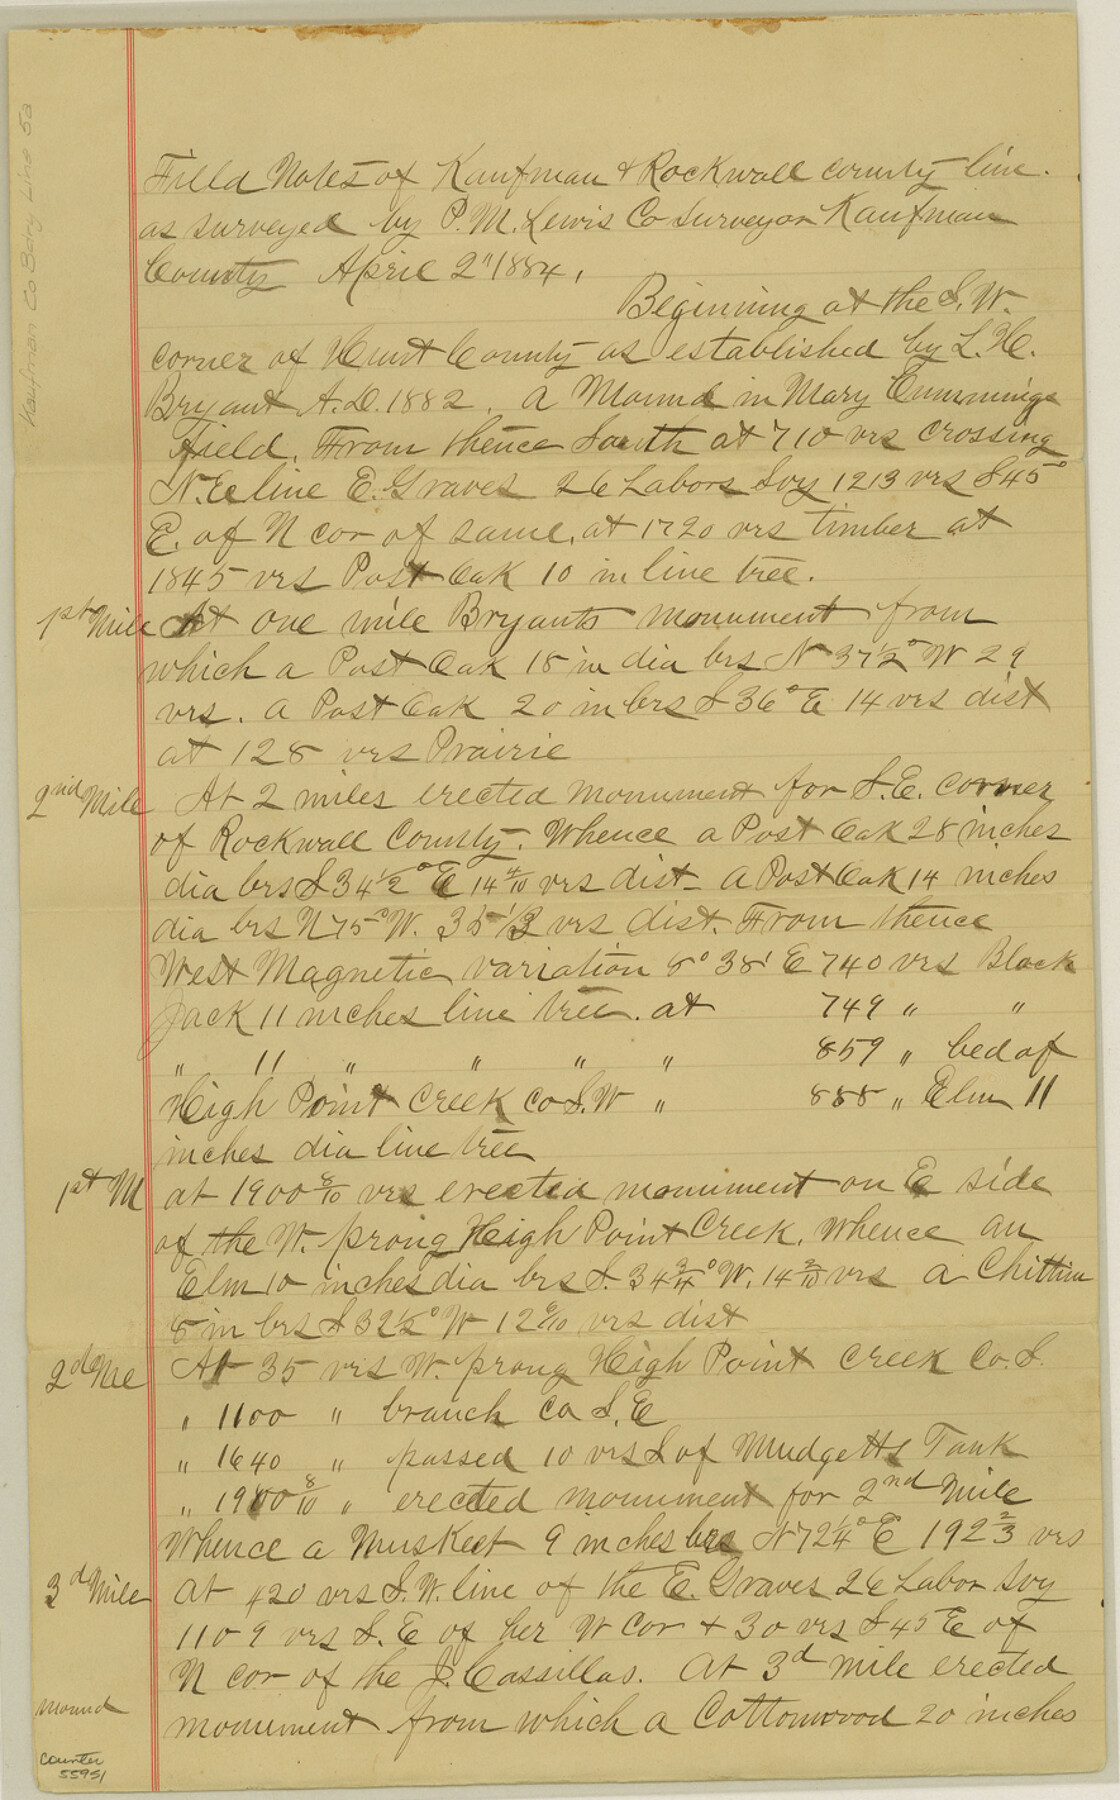 Kaufman Co Bdry Line 5a
Field Notes of Kaufman & Rockwall county line.
as surveyed by P. M. Lewis Co Surveyor Kaufman
County April 2" 1884.
Beginning at the S. W.
corner of Hunt County as established by L. H.
Bryant A. D. 1882. A Mound in Mary Cummings
Field. From thence South at 710 vrs crossing
N. E line E. Graves 26 Labors Svy 1213 vrs S 45°
E. of N cor of same, at 1720 vrs timber at
1845 vrs Post Oak 10 in line tree.
1st Mile At one mile Bryants monument from
which a Post Oak 18 in dia brs N 37 1/2° W 29
vrs. a Post Oak 20 in brs S 36° E 14 vrs dist
at 128 vrs Prairie
2nd Mile At 2 miles erected monument for S. E. corner
of Rockwall County. Whence a Post Oak 28 inches
dia brs S 34 1/2° E 14 4/10 vrs dist - a Post Oak 14 inches
dia brs N 75° W. 35 1/3 vrs dist. From thence
West Magnetic variation 8° 38' E 740 vrs Black
Jack 11 inches line tree. at 749 " "
" 11 " " " " 859 " bed of
High Point Creek co S. W " 888 " Elm 11
inches dia line tree
1st M at 1900 8/10 vrs erected monument on E side
of the W. prong High Point Creek. Whence an
Elm 10 inches dia brs S. 34 3/4° W. 14 2/10 vrs a Chittim
8 in brs S 32 1/2° W 12 6/10 vrs dist
2d Mle At 35 vrs W. prong High Point Creek Co. S.
" 1100 " branch Co S. E
" 1640 " passed 10 vrs S of Mudgetts Tank
" 1900 8/10 " erected monument for 2nd Mile
Whence a Muskeet 9 inches brs N 72 1/4° E 192 2/3 vrs
3d Mile at 420 vrs S. W. line of the E. Graves 26 Labor Svy
1109 vrs S. E of her W Cor & 30 vrs S 45 E of
N cor of the J. Cassillas. At 3d mile erected
mound
monument from which a Cottonwood 20 inches
Counter
55951